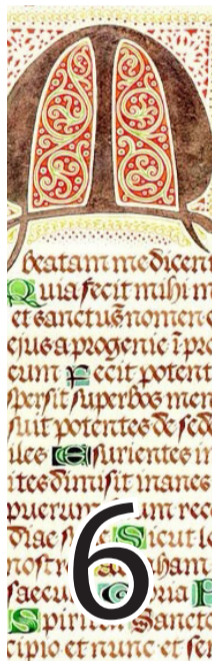 M
beatam me dicent
Quia fecit mihi m
et sanctuʒ nomen e
ejus a progenie ĩ pro
eum Fecit potent
spersit superbos men
suit potentes de sed
iles Esurientes i
ites dimisit inanes
puerum
Sicut l
nostr ham
saecul F
Spirit Sancto
cipio et nunc et sem
6